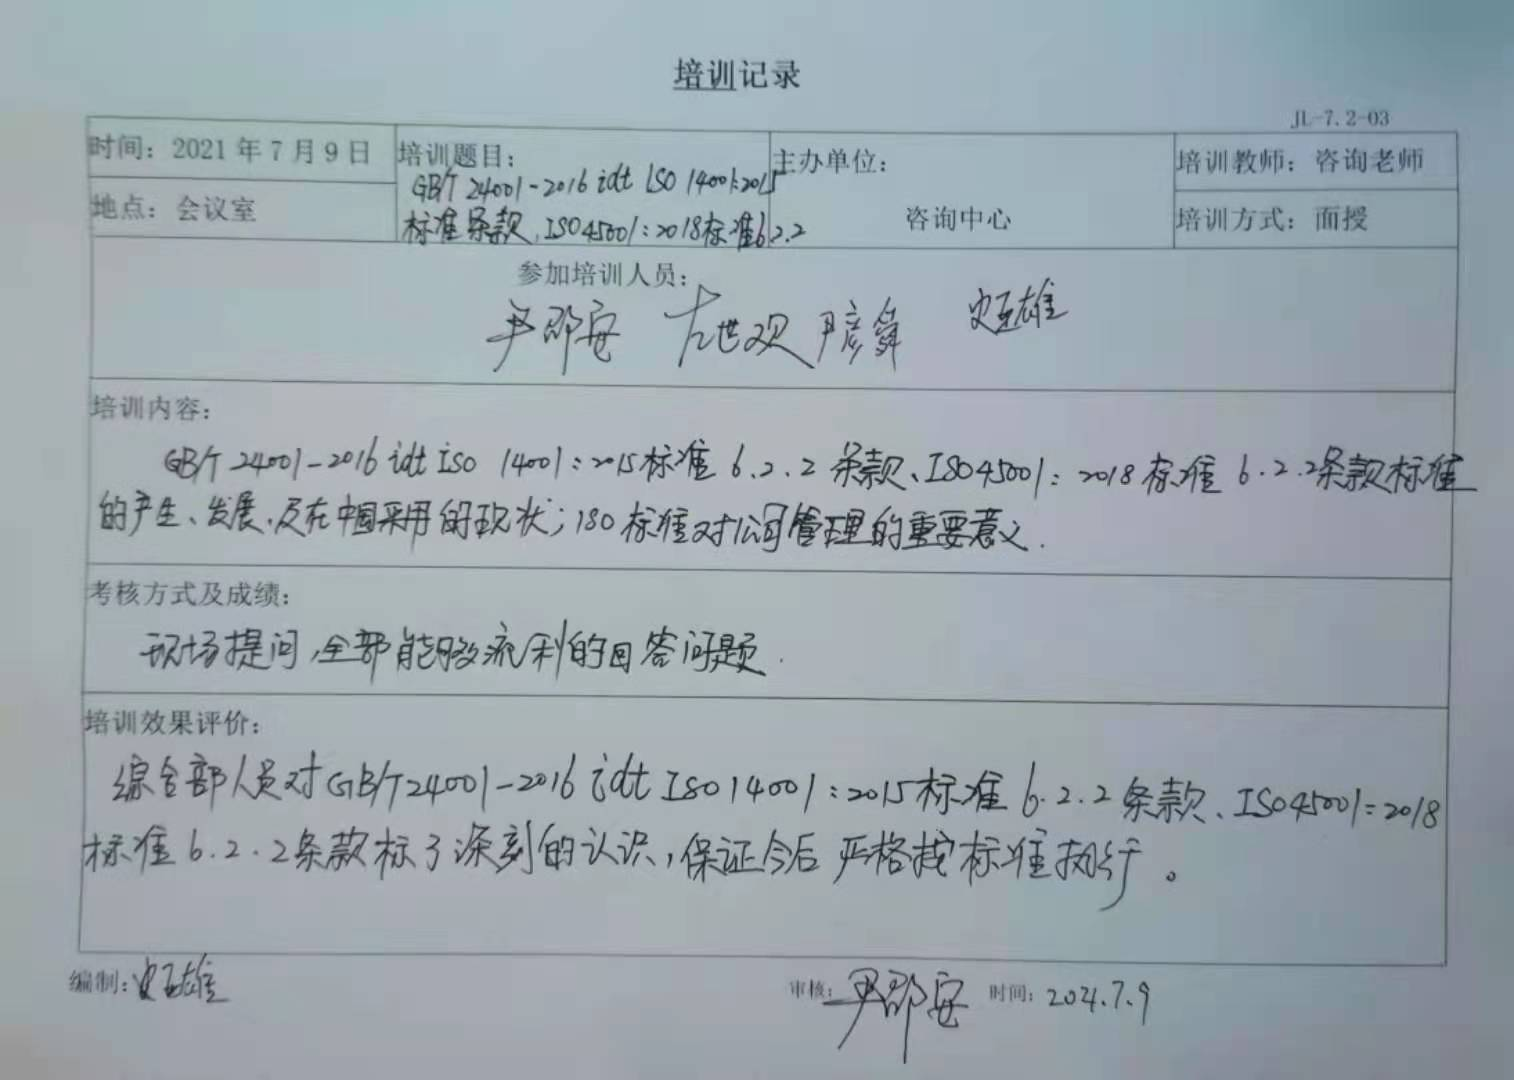 培训记录
JL-7.2-03
时间：2021 年 7 月 9 日
培训题目：
GB/T 24001-2016 idt ISO 14001:2015
标准条款、ISO45001:2018标准6.2.2
主办单位：
咨询中心
培训教师：咨询老师
地点：会议室
培训方式：面授
参加培训人员：
尹邵安 左世观 尹彦舜
培训内容：
GB/T 24001-2016 idt ISO 14001:2015标准 6.2.2 条款、ISO45001:2018标准 6.2.2条款标准
的产生、发展、及在中国采用的现状；ISO标准对公司管理的重要意义.
考核方式及成绩：
现场提问，全部能够流利的回答问题.
培训效果评价：
综合部人员对GB/T24001-2016 idt ISO14001:2015标准 6.2.2 条款、ISO45001:2018
标准 6.2.2条款标了深刻的认识，保证今后严格按标准执行。
编制：
审核：尹邵安 时间：2021.7.9